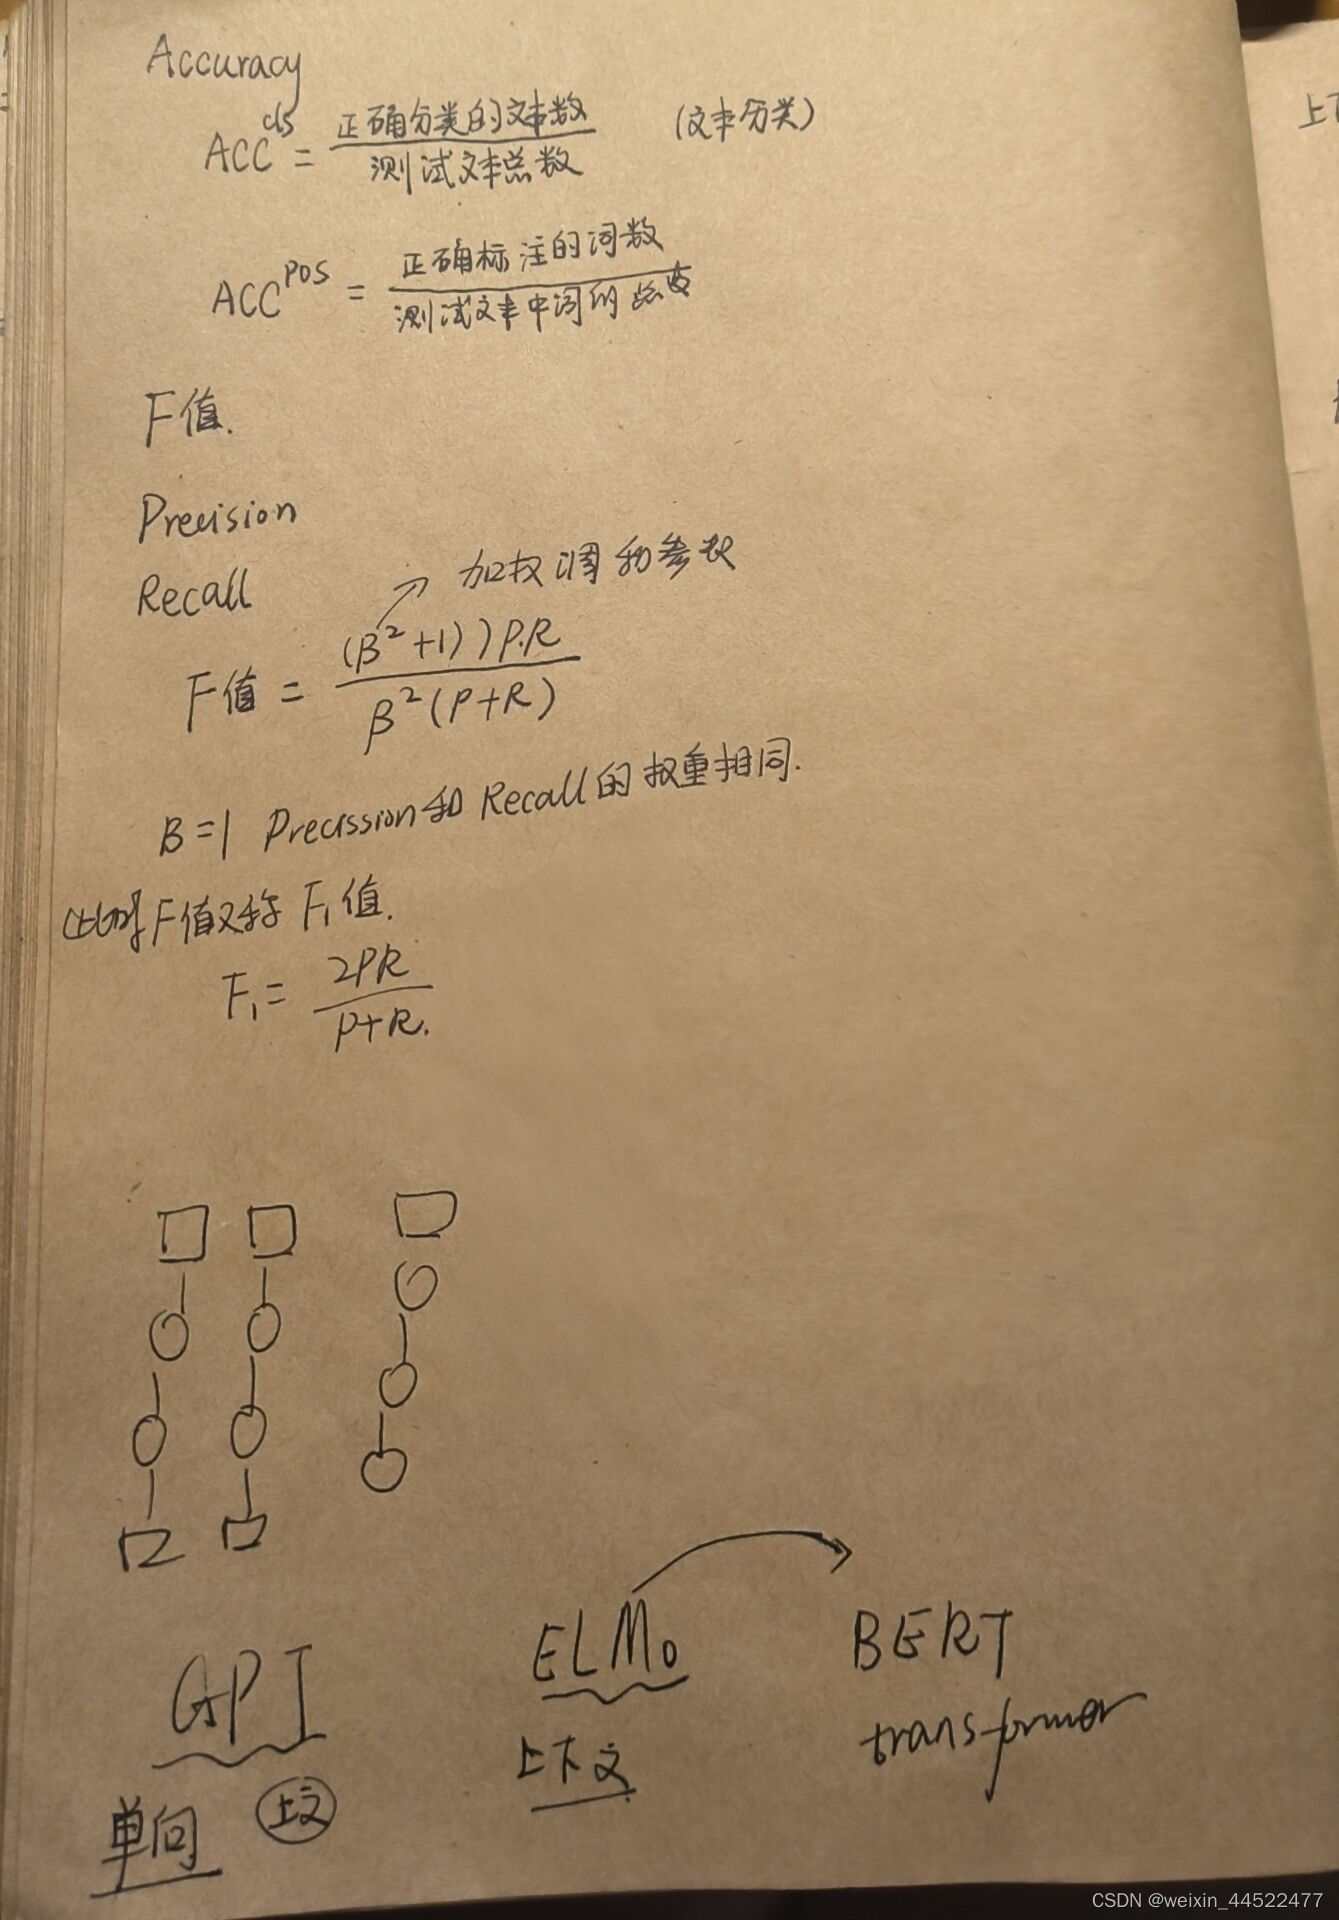 Accuracy
ACC^cls = 正确分类的文本数 / 测试文本总数 (文本分类)
ACC^POS = 正确标注的词数 / 测试文本中词的总数
F值.
Precision
Recall
加权调和参数
F值 = (β²+1))P.R / β²(P+R)
B=1 Precission和Recall的权重相同.
此时F值又称F₁值.
F₁= 2PR / P+R.
GPT
ELMo
BERT
单向
上文
上下文
transformer
上下
CSDN @weixin_44522477